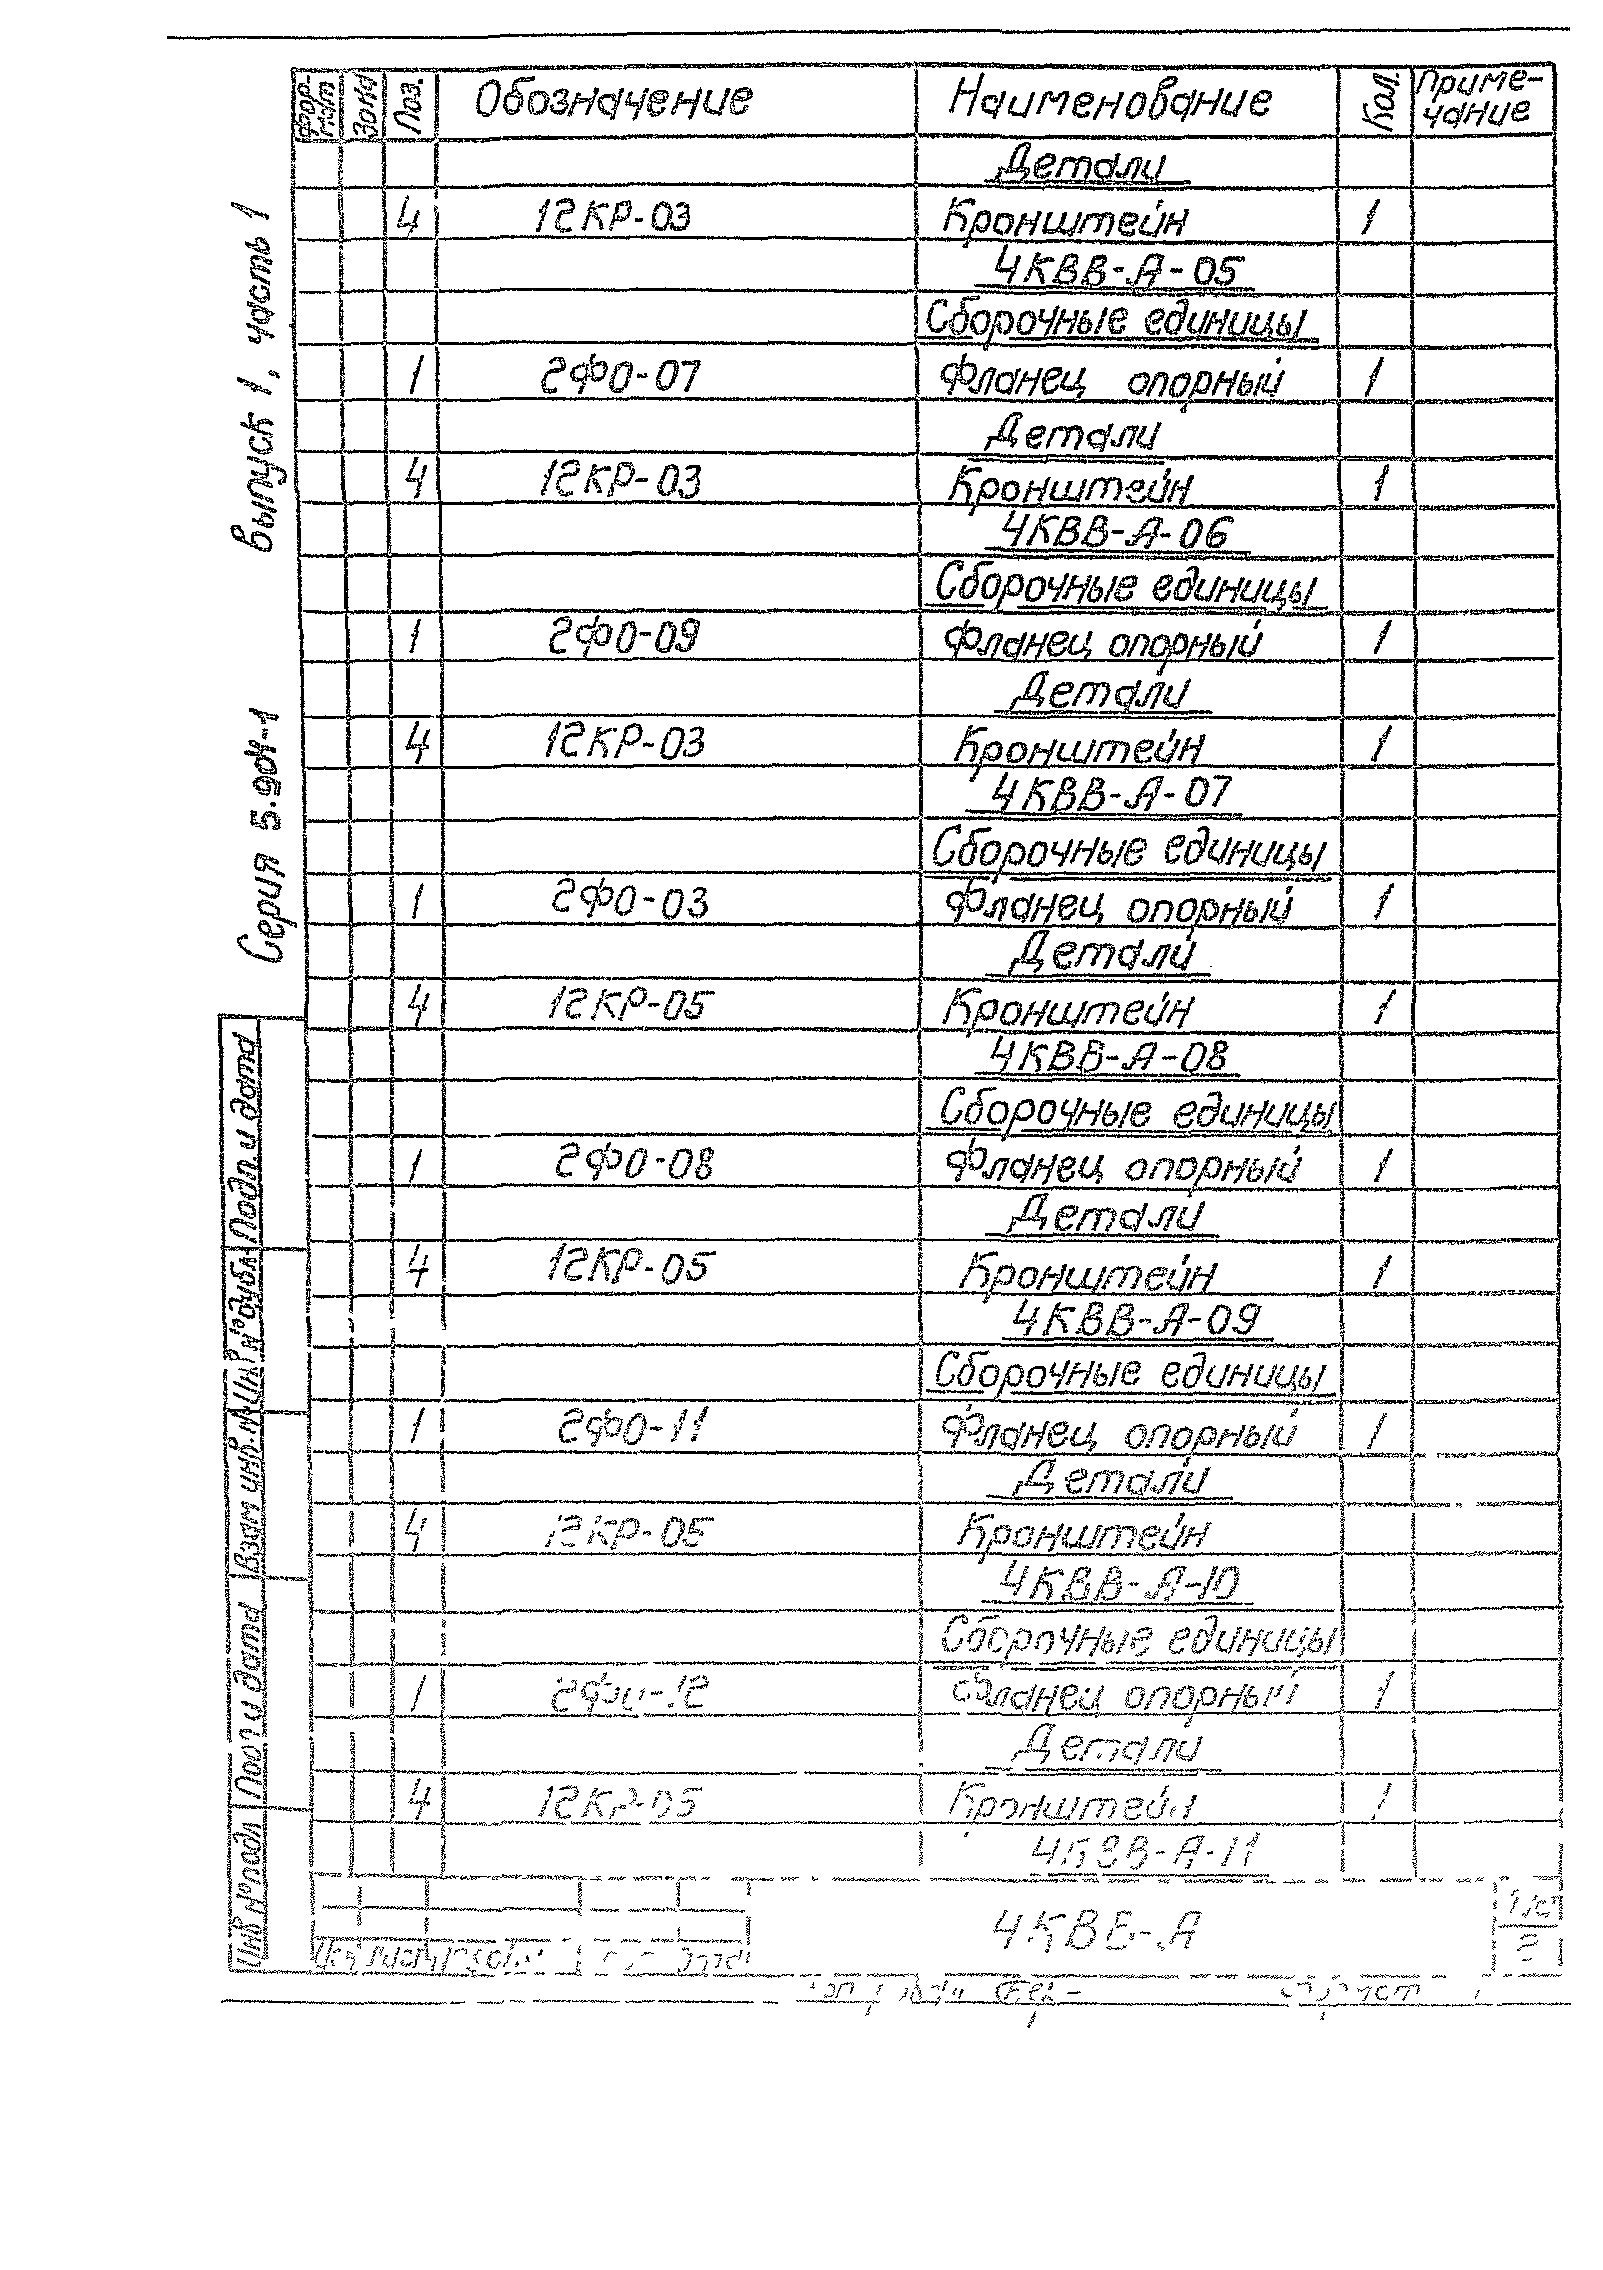 Формат Зона Поз. Обозначение Наименование Кол. Приме-
чание
Детали
4 12КР-03 Кронштейн 1
4КВВ-А-05
Сборочные единицы
1 2ФО-07 Фланец опорный 1
Детали
4 12КР-03 Кронштейн 1
4КВВ-А-06
Сборочные единицы
1 2ФО-09 Фланец опорный 1
Детали
4 12КР-03 Кронштейн 1
4КВВ-А-07
Сборочные единицы
1 2ФО-03 Фланец опорный 1
Детали
4 12КР-05 Кронштейн 1
4КВВ-А-08
Сборочные единицы
1 2ФО-08 Фланец опорный 1
Детали
4 12КР-05 Кронштейн 1
4КВВ-А-09
Сборочные единицы
1 2ФО-11 Фланец опорный 1
Детали
4 12КР-05 Кронштейн
4КВВ-А-10
Сборочные единицы
1 2ФО-12 Фланец опорный 1
Детали
4 12КР-05 Кронштейн 1
4КВВ-А-11
4КВВ-А
Лист
2
Серия 5.904-1 Выпуск 1, часть 1
Подп. и дата
Инв. № дубл.
Взам. инв. №
Подп. и дата
Инв. № подл.